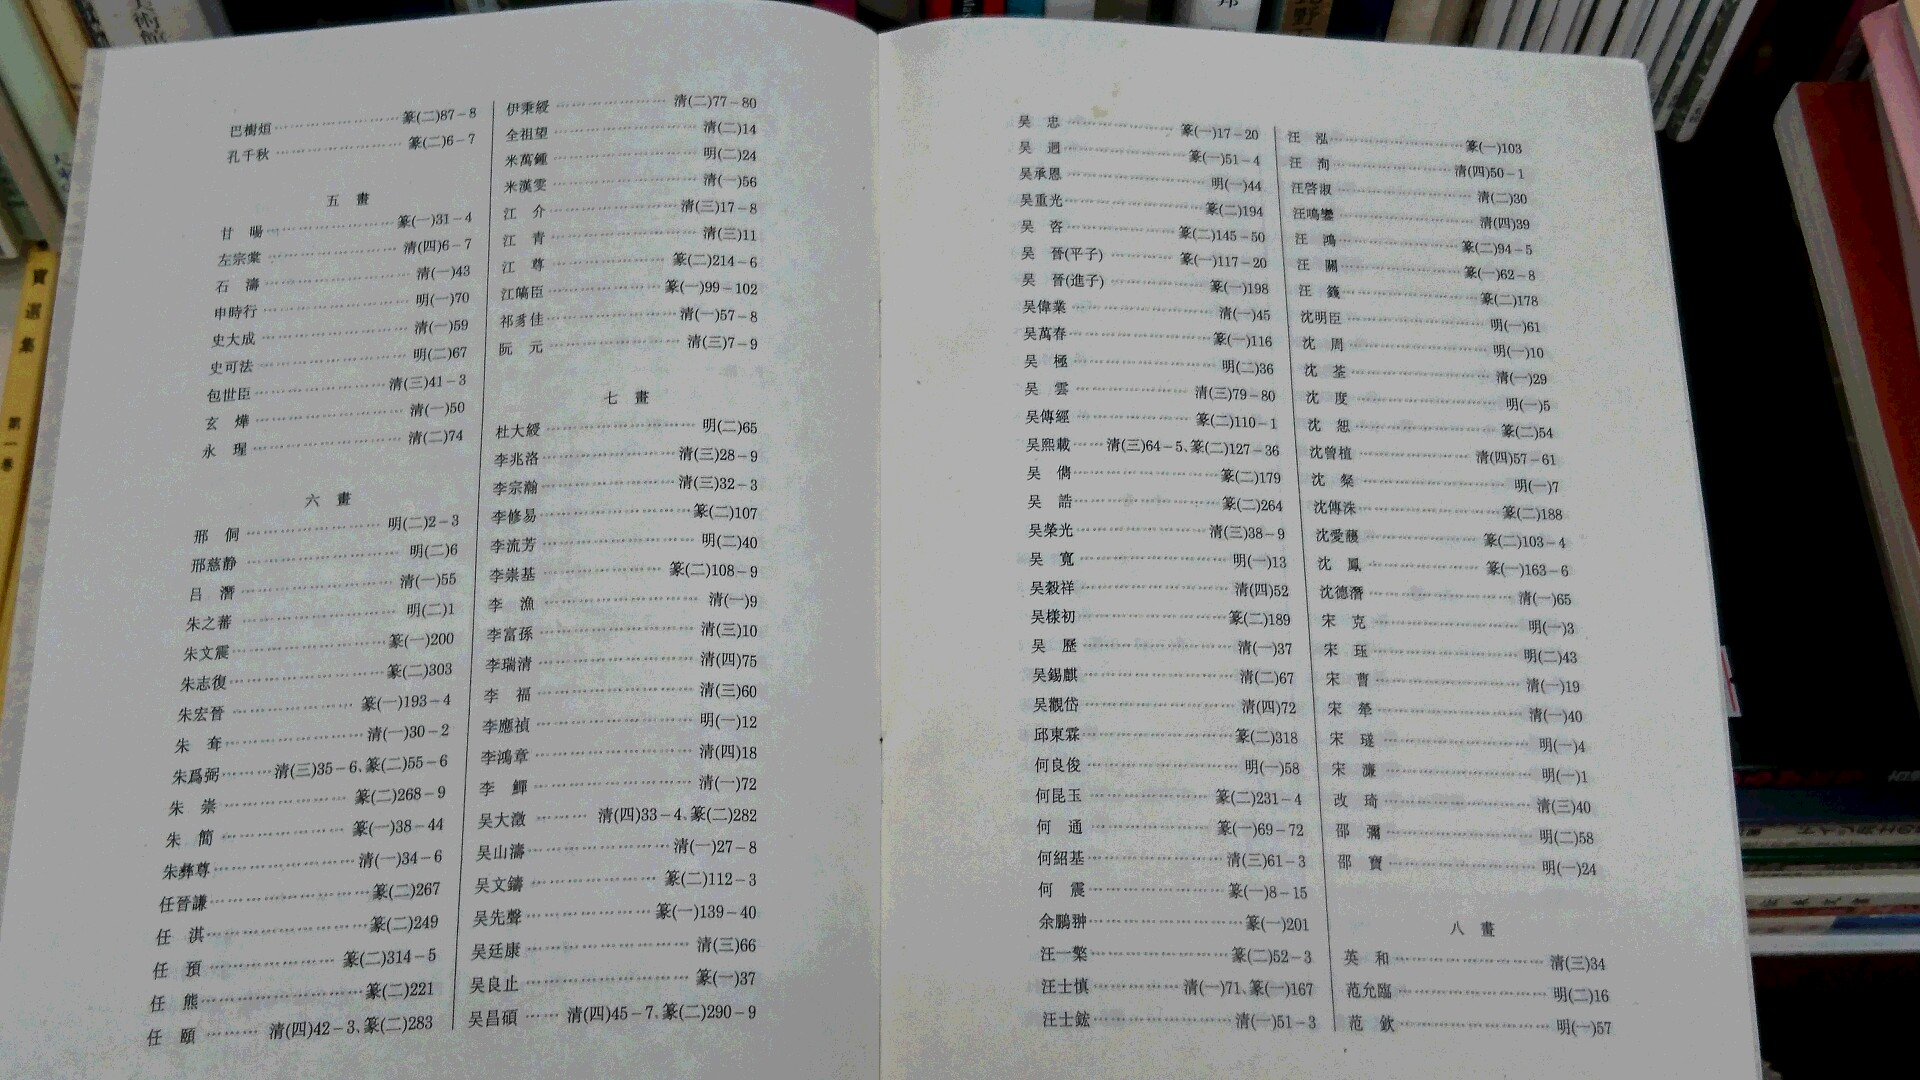 巴樹烜 篆(二)87-8
孔千秋 篆(二)6-7
五 畫
甘 暘 篆(一)31-4
左宗棠 清(四)6-7
石 濤 清(一)43
申時行 明(一)70
史大成 清(一)59
史可法 明(二)67
包世臣 清(三)41-3
玄 燁 清(一)50
永 瑆 清(二)74
六 畫
邢 侗 明(二)2-3
邢慈静 明(二)6
吕 潛 清(一)55
朱之蕃 明(二)1
朱文震 篆(一)200
朱志復 篆(二)303
朱宏晉 篆(一)193-4
朱 耷 清(一)30-2
朱爲弼 清(三)35-6、篆(二)55-6
朱 崇 篆(二)268-9
朱 簡 篆(一)38-44
朱彝尊 清(一)34-6
任晉謙 篆(二)267
任 淇 篆(二)249
任 預 篆(二)314-5
任 熊 篆(二)221
任 頤 清(四)42-3、篆(二)283
伊秉綬 清(二)77-80
全祖望 清(二)14
米萬鍾 明(二)24
米漢雯 清(一)56
江 介 清(三)17-8
江 青 清(三)11
江 尊 篆(二)214-6
江皜臣 篆(一)99-102
祁豸佳 清(一)57-8
阮 元 清(三)7-9
七 畫
杜大綬 明(二)65
李兆洛 清(三)28-9
李宗瀚 清(三)32-3
李修易 篆(二)107
李流芳 明(二)40
李崇基 篆(二)108-9
李 漁 清(一)9
李富孫 清(三)10
李瑞清 清(四)75
李 福 清(三)60
李應禎 明(一)12
李鴻章 清(四)18
李 鱓 清(一)72
吴大澂 清(四)33-4、篆(二)282
吴山濤 清(一)27-8
吴文鑄 篆(二)112-3
吴先聲 篆(一)139-40
吴廷康 清(三)66
吴良止 篆(一)37
吴昌碩 清(四)45-7、篆(二)290-9
吴 忠 篆(一)17-20
吴 迥 篆(一)51-4
吴承恩 明(一)44
吴重光 篆(二)194
吴 咨 篆(二)145-50
吴 晉(平子) 篆(一)117-20
吴 晉(進子) 篆(一)198
吴偉業 清(一)45
吴萬春 篆(一)116
吴 極 明(二)36
吴 雲 清(三)79-80
吴傳經 篆(二)110-1
吴熙載 清(三)64-5、篆(二)127-36
吴 儁 篆(二)179
吴 誥 篆(二)264
吴榮光 清(三)38-9
吴 寬 明(一)13
吴穀祥 清(四)52
吴樣初 篆(二)189
吴 歷 清(一)37
吴錫麒 清(二)67
吴觀岱 清(四)72
邱東霖 篆(二)318
何良俊 明(一)58
何昆玉 篆(二)231-4
何 通 篆(一)69-72
何紹基 清(三)61-3
何 震 篆(一)8-15
余鵬翀 篆(一)201
汪一檠 篆(二)52-3
汪士慎 清(一)71、篆(一)167
汪士鋐 清(一)51-3
汪 泓 篆(一)103
汪 洵 清(四)50-1
汪啓淑 清(二)30
汪鳴鑾 清(四)39
汪 鴻 篆(二)94-5
汪 關 篆(一)62-8
汪 籛 篆(二)178
沈明臣 明(一)61
沈 周 明(一)10
沈 荃 清(一)29
沈 度 明(一)5
沈 恕 篆(二)54
沈曾植 清(四)57-61
沈 粲 明(一)7
沈傳洙 篆(二)188
沈愛蘐 篆(二)103-4
沈 鳳 篆(一)163-6
沈德潛 清(一)65
宋 克 明(一)3
宋 珏 明(二)43
宋 曹 清(一)19
宋 犖 清(一)40
宋 璲 明(一)4
宋 濂 明(一)1
改 琦 清(三)40
邵 彌 明(二)58
邵 寶 明(一)24
八 畫
英 和 清(三)34
范允臨 明(二)16
范 欽 明(一)57
寶選集 第一卷
美術館